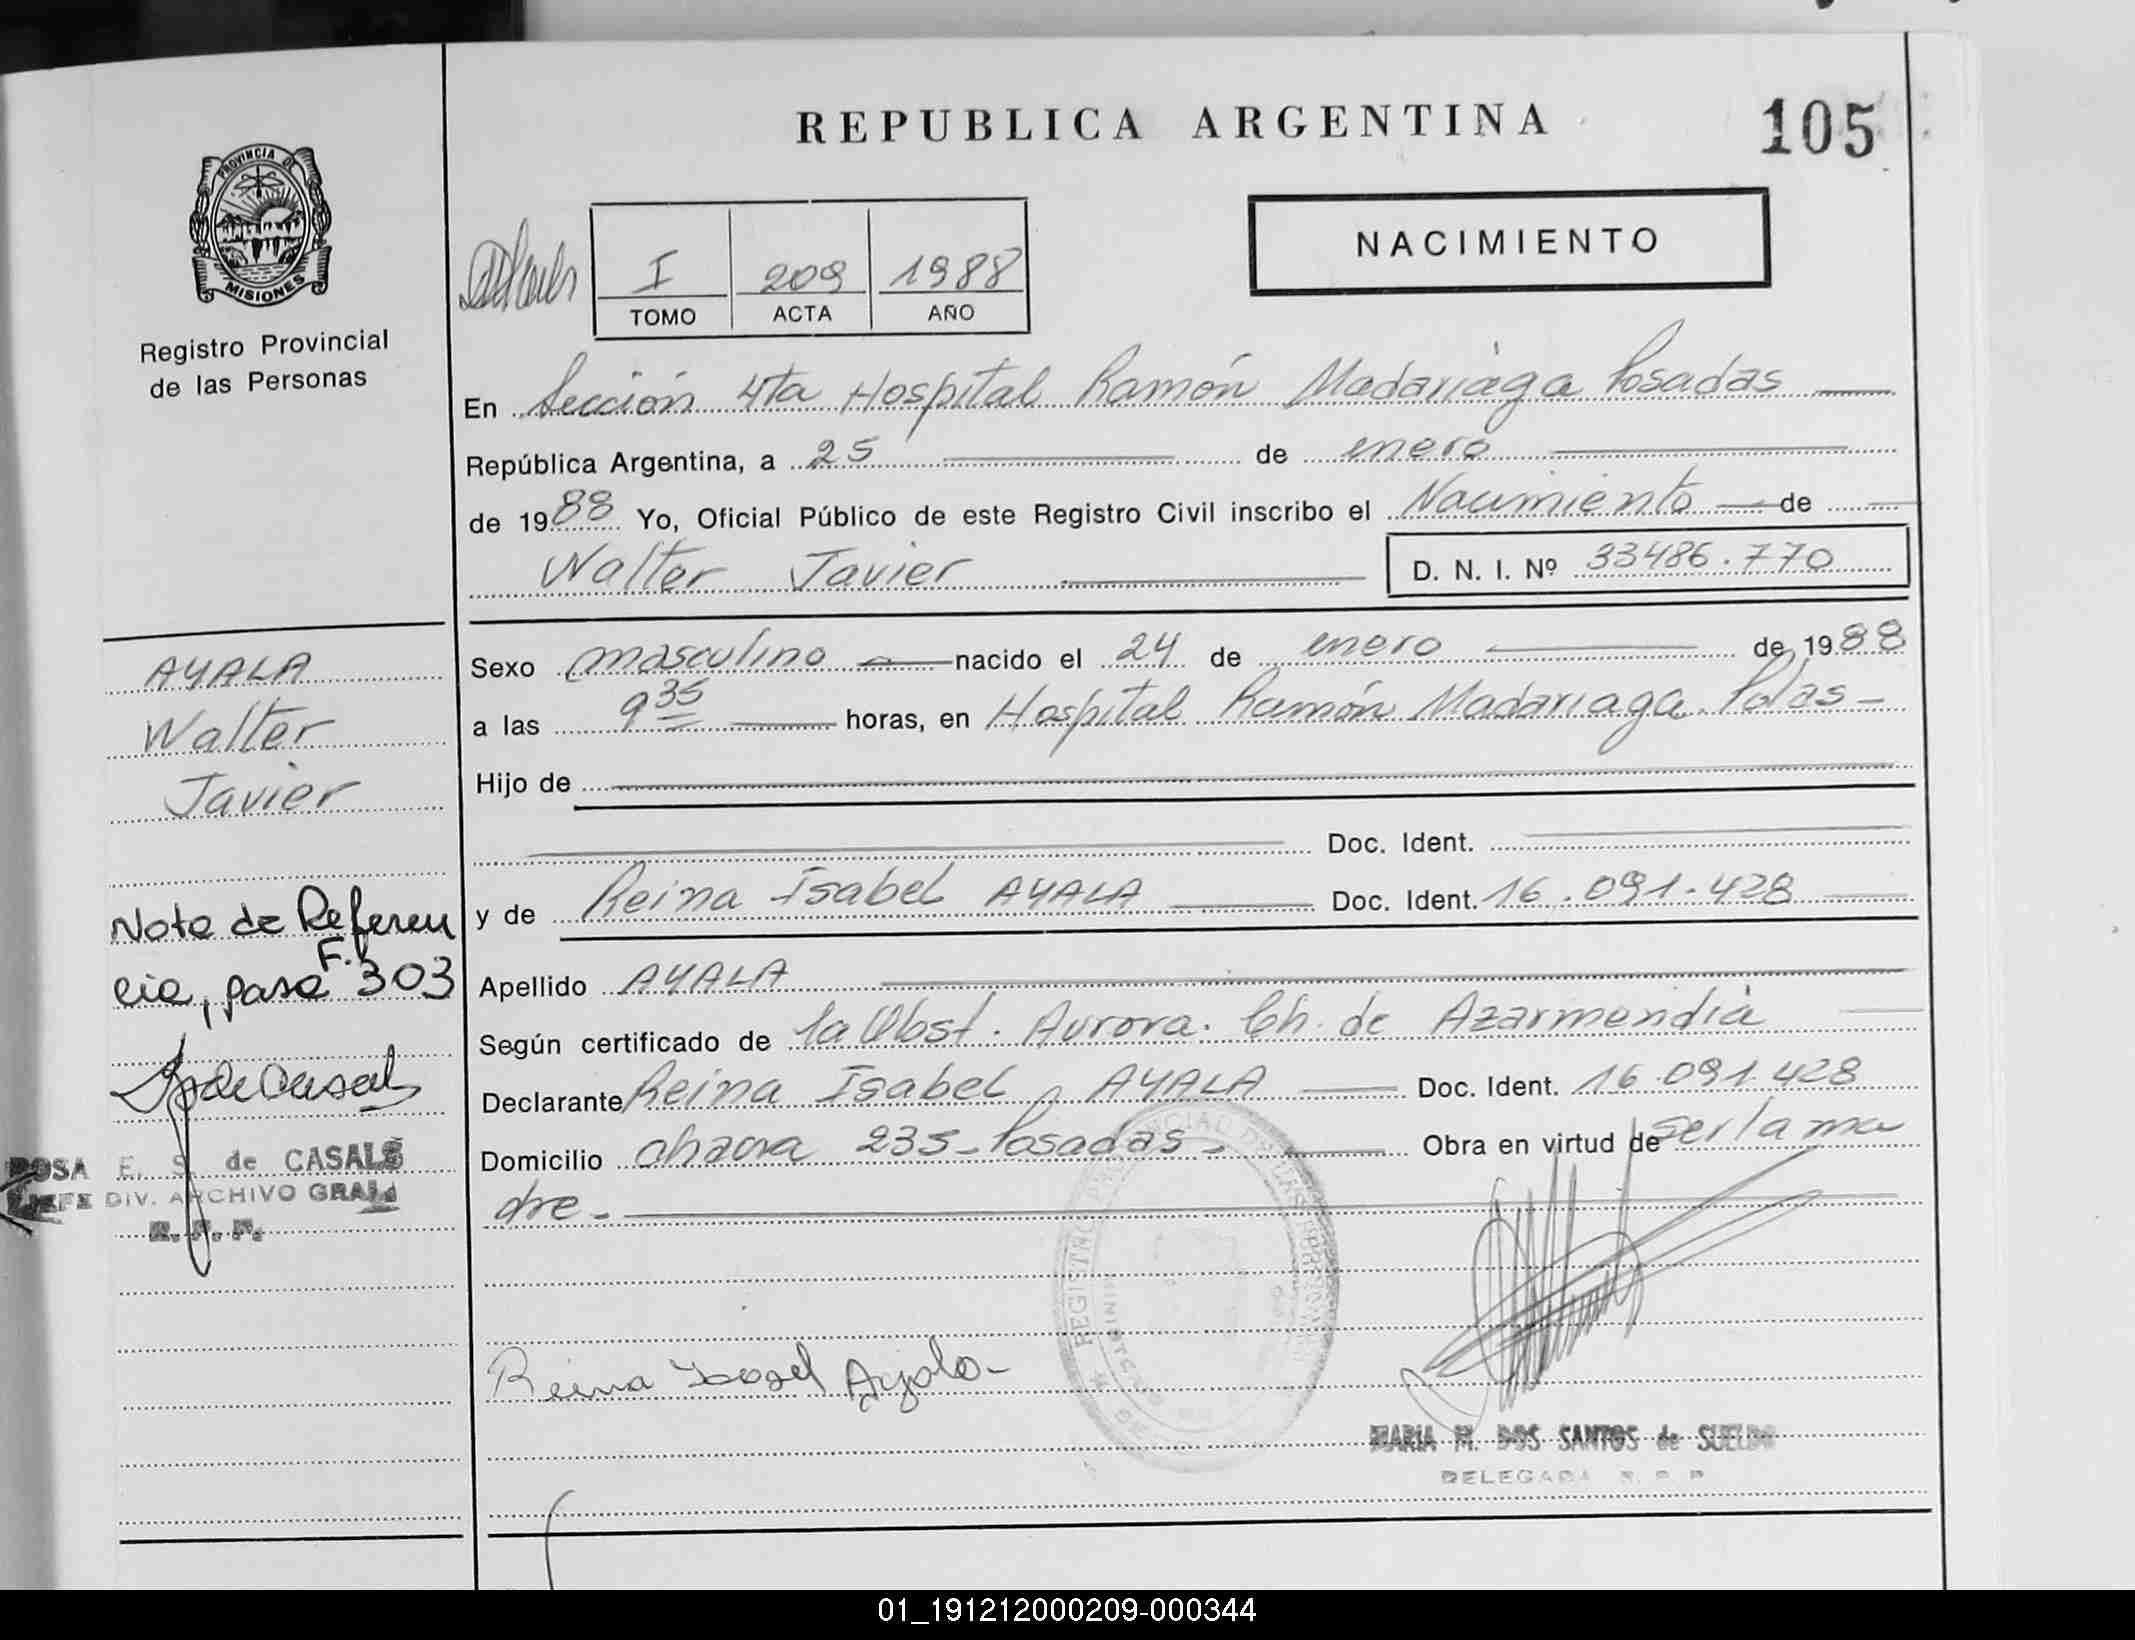 REPUBLICA ARGENTINA
105
PROVINCIA DE
MISIONES
Registro Provincial
de las Personas
I 209 1988
TOMO ACTA AÑO
NACIMIENTO
En Sección 4ta Hospital Ramón Madariaga Posadas
República Argentina, a 25 de enero
de 1988 Yo, Oficial Público de este Registro Civil inscribo el Nacimiento de
Walter Javier D. N. I. Nº 33486.770
Sexo masculino nacido el 24 de enero de 1988
a las 9 35 horas, en Hospital Ramón Madariaga. Pdas-
Hijo de
Doc. Ident.
y de Reina Isabel AYALA Doc. Ident. 16.091.428
Apellido AYALA
Según certificado de la Obst. Aurora. Ch. de Azarmendia
Declarante Reina Isabel AYALA Doc. Ident. 16.091.428
Domicilio chacra 235-Posadas- Obra en virtud de ser la ma
dre-
Reina Isabel Ayala-
MARIA M. DOS SANTOS de SUELDO
DELEGADA R. P. P.
AYALA
Walter
Javier
Nota de Referen
cia, pasa F. 303
ROSA E. S. de CASALS
JEFE DIV. ARCHIVO GRAL
R. P. P.
01_191212000209-000344